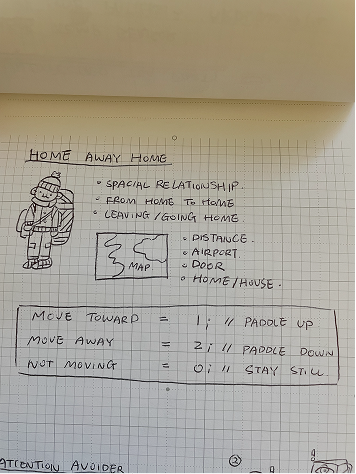 HOME AWAY HOME
• SPACIAL RELATIONSHIP.
• FROM HOME TO HOME
• LEAVING/GOING HOME.
MAP
• DISTANCE.
• AIRPORT.
• DOOR
• HOME/HOUSE.
MOVE TOWARD = 1; // PADDLE UP
MOVE AWAY = 2; // PADDLE DOWN
NOT MOVING = 0; // STAY STILL.
ATTENTION AVOIDER
②